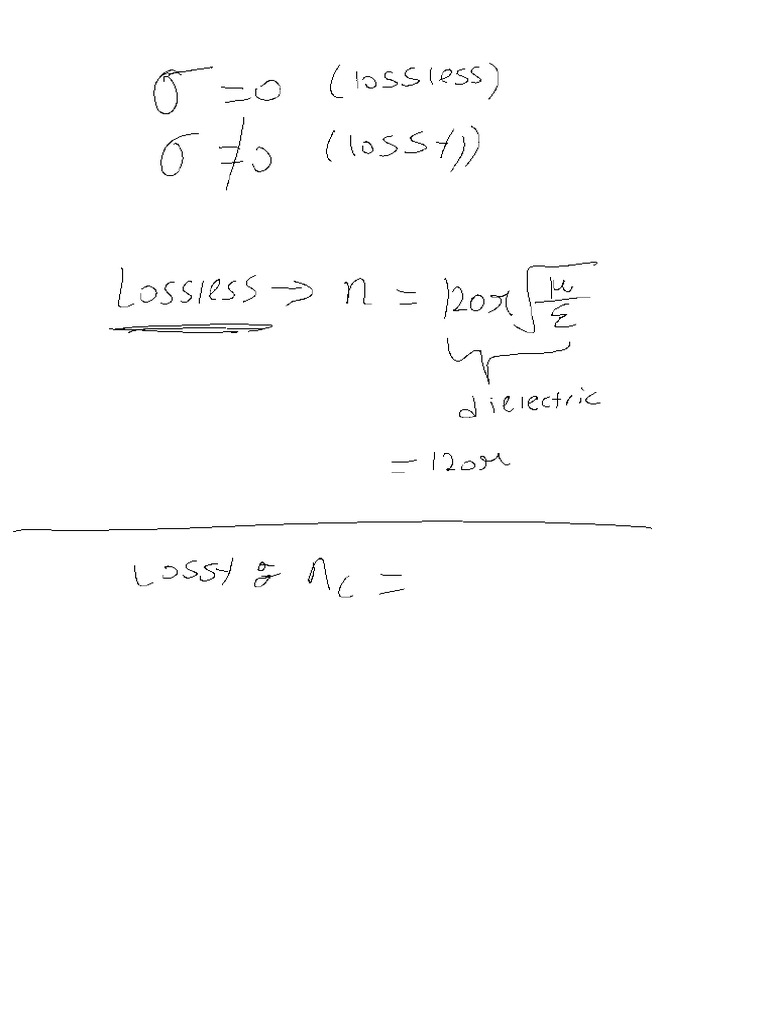 σ = 0 (lossless)
σ ≠ 0 (lossy)
Lossless → η = 120π √(μ/ε)
dielectric
= 120π
Lossy : ηc =